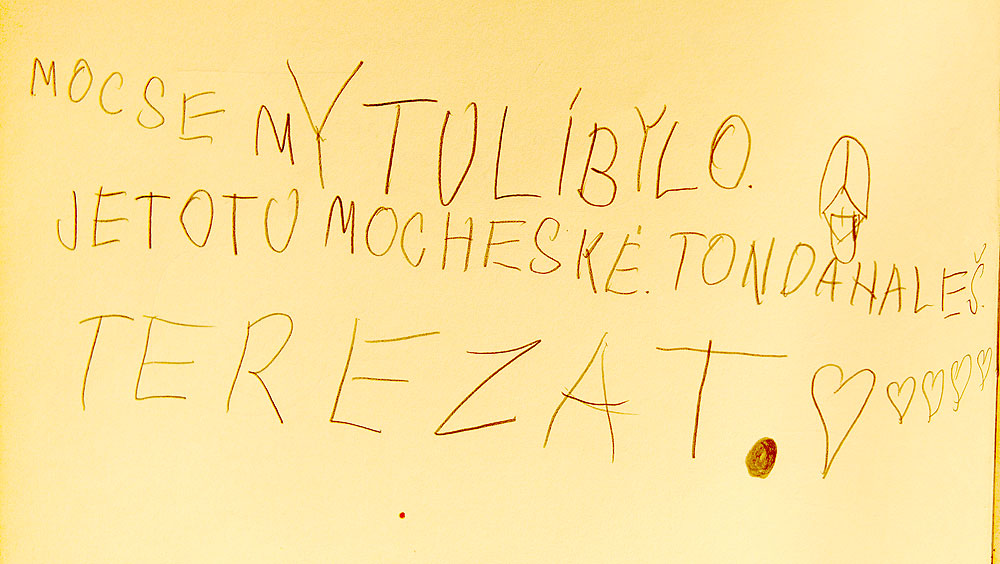 MOCSE MY TULÍBYLO.
JETOTU MOCHESKÉ. TONDAHALEŠ.
TEREZA T.